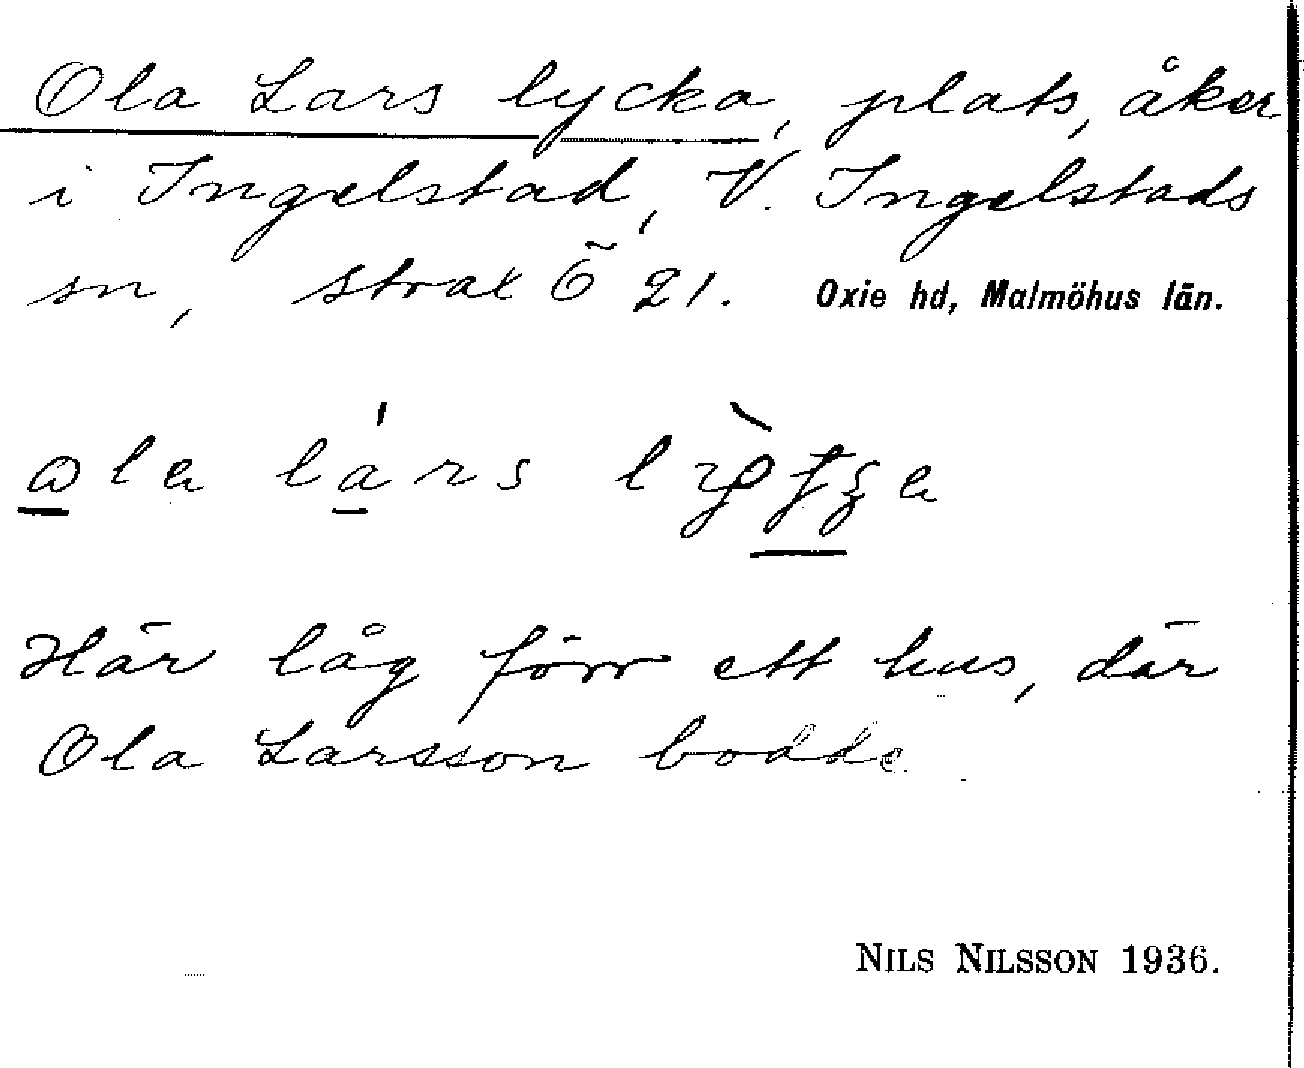 Ola Lars lycka, plats, åker
i Ingelstad, V. Ingelstads
sn, strax Ö 21. Oxie hd, Malmöhus län.
Här låg förr ett hus, där
Ola Larsson bodde.
NILS NILSSON 1936.